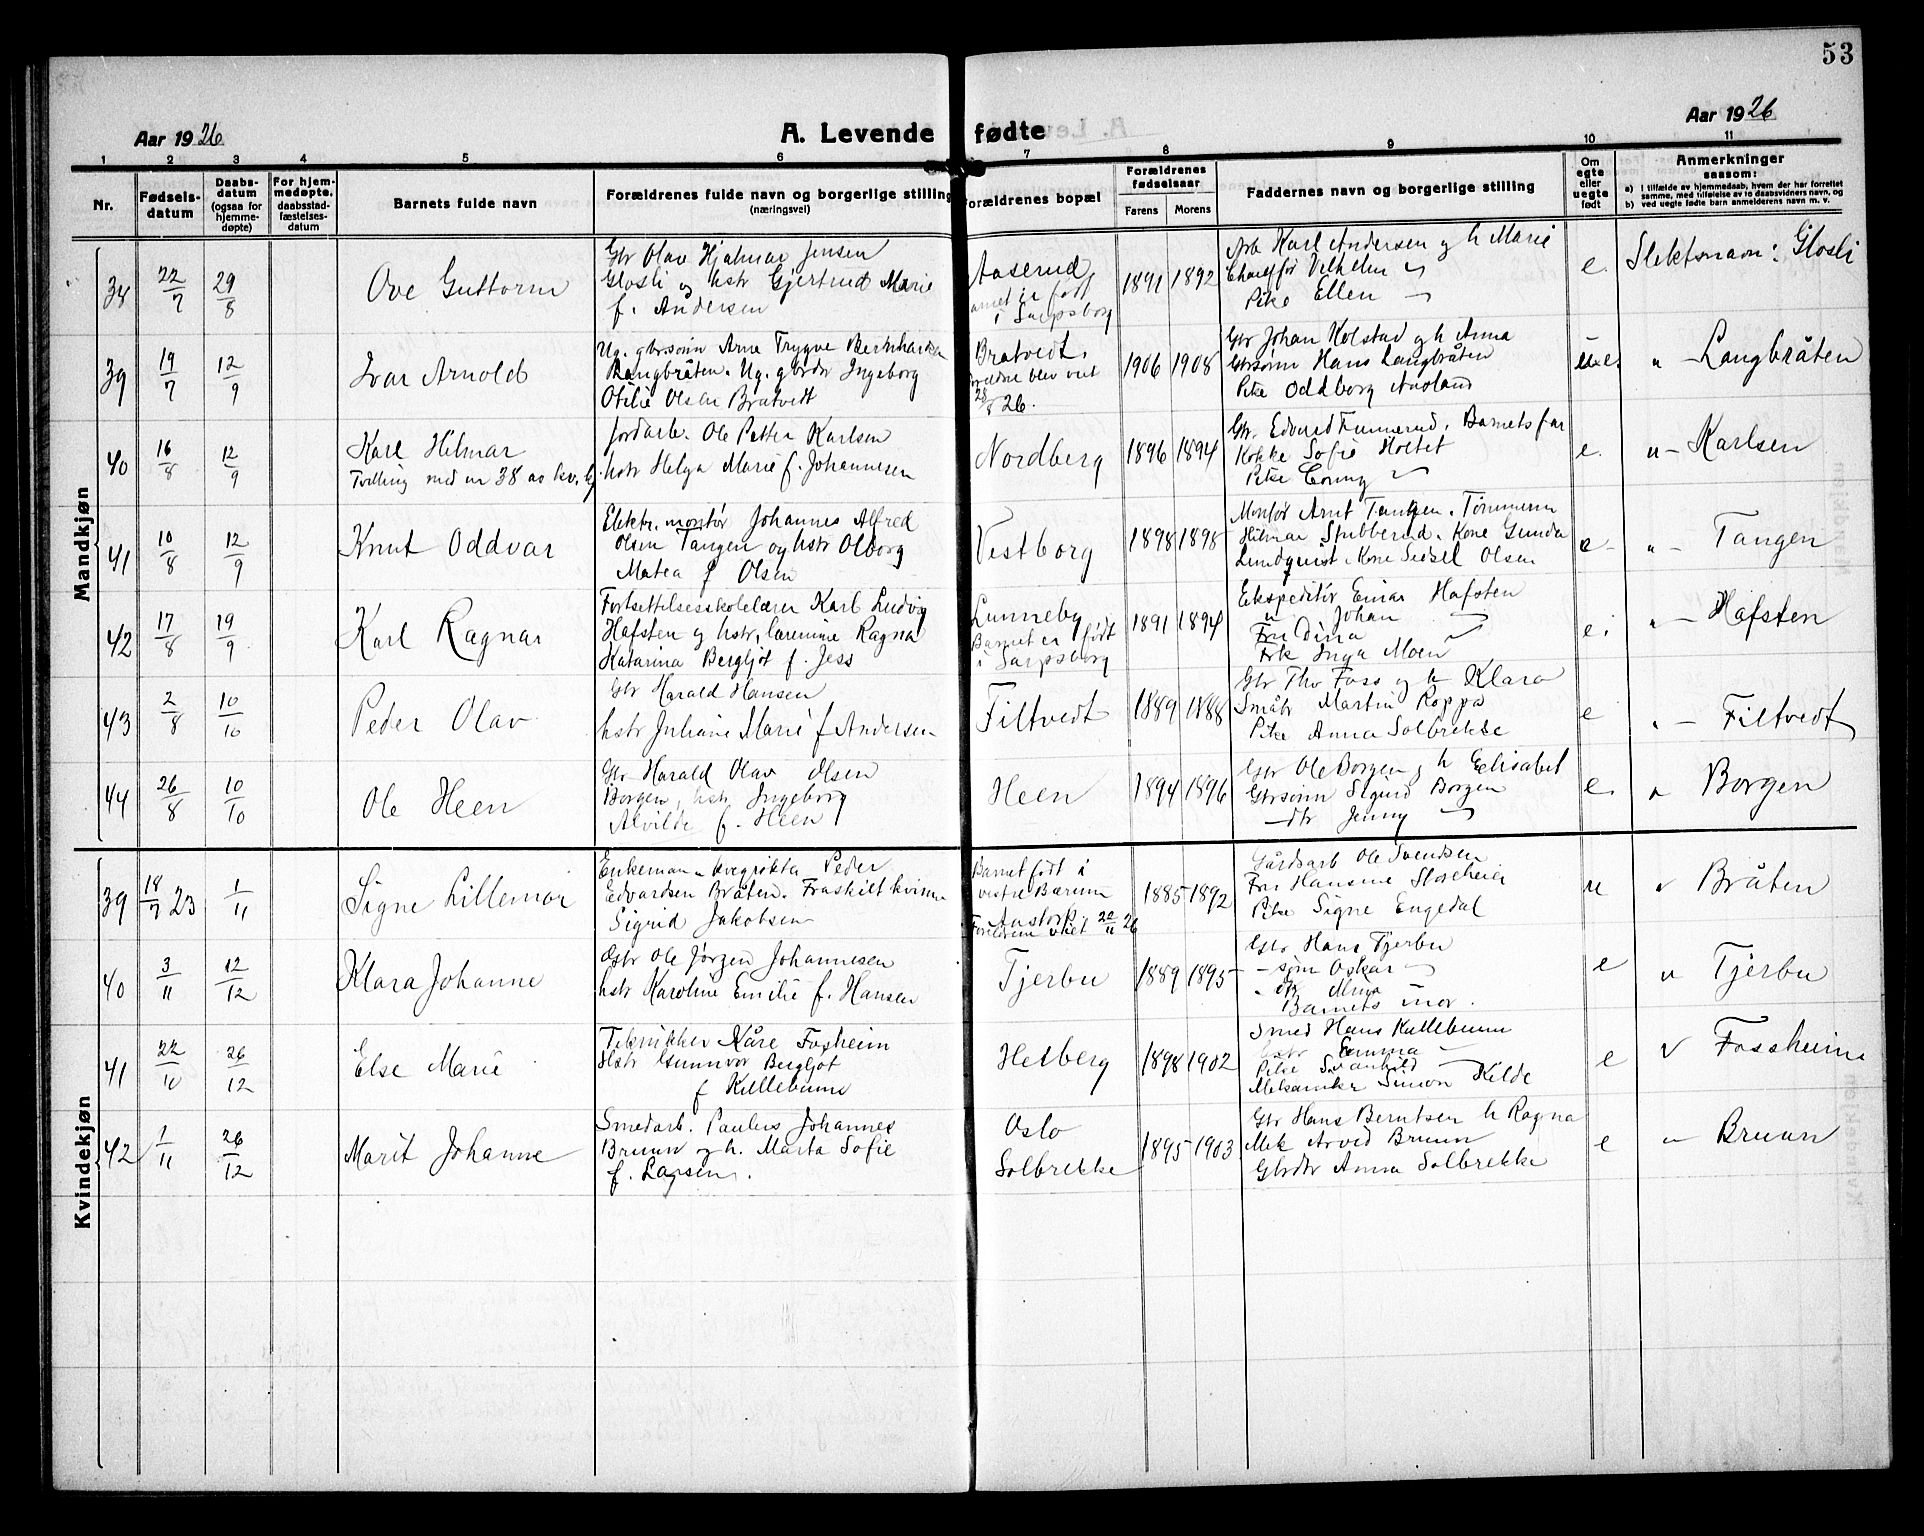 53
Aar 1926
A. Levende fødte
Aar 1926
1 2 3 4 5 6 7 8 9 10 11
Nr.
Fødsels-
datum
Daabs-
datum
(ogsaa for
hjemme-
døpte)
For hjem-
medøpte,
daabsstad-
fæstelses-
datum
Barnets fulde navn
Forældrenes fulde navn og borgerlige stilling
(næringsvei)
Forældrenes bopæl
Forældrenes
fødselsaar
Farens Morens
Faddernes navn og borgerlige stilling
Om
egte
eller
uegte
født
Anmerkninger
saasom:
a) i tilfælde av hjemmedaab, hvem der har forrettet
samme, med tilføielse av to daabsvidners navn, og
b) ved uegte fødte barn anmelderens navn m. v.
Mandkjøn
38 22/7 29/8
Ove Guttorm
Gbr Olav Hjalmar Jensen
Glosli og hstr Gjertrud Marie
f. Andersen
Aaserud,
Barnet er født
i Sarpsborg
1891 1892
Arb Karl Andersen og h Marie
Chauffør Vilhelm
Pike Ellen
e.
Slektsnavn: Glosli
39 19/7 12/9
Ivar Arnold
Ug. gbrsønn Arne Trygve Bernhardsen
Langbråten. Ug. gbrdtr Ingeborg
Otilie Olsen Bratvedt
Bratvedt.
Foreldre blev viet
28/8 26.
1906 1908
Gbr Johan Kolstad og h Anna
Gbrsønn Hans Langbråten
Pike Oddborg Aasland
u.e.
" Langbråten
40 16/8 12/9
Karl Hilmar
Tvilling med nr 38 av kv.kj
Jordarb. Ole Petter Karlsen
hstr Helga Marie f. Johannesen
Nordberg
1896 1894
Gbr. Edvard Funnerud. Barnets far
Kokke Sofie Holtet
Pike Conny
e.
"- Karlsen
41 10/8 12/9
Knut Oddvar
Elektr. montør Johannes Alfred
Olsen Tangen og hstr Olborg
Matea f Olsen
Vestborg
1898 1898
Montør Arnt Tangen. Tømmerm
Hilmar Stubberud. Kone Gunda
Lundquist. Kone Sidsel Olsen
e-
"- Tangen
42 17/8 19/9
Karl Ragnar
Fortsettelsesskolelærer Karl Ludvig
Hafsten og hstr, lærerinne Ragna
Katarina Bergljot f. Jess
Lunneby
Barnet er født
i Sarpsborg
1891 1894
Ekspeditør Einar Hafsten
" Johan
Fru Dina
Frk Inga Moen
e.
"- Hafsten
43 2/8 10/10
Peder Olav
Gbr Harald Hansen
hstr Juliane Marie f Andersen
Filtvedt
1889 1888
Gbr Thv Foss og h Klara
Småbr Martin Roppa
Pike Anna Solbrekke
e
"- Filtvedt
44 26/8 10/10
Ole Heen
Gbr Harald Olav Olsen
Borgen, hstr Ingeborg
Alvilde f. Heen
Heen
1894 1896
Gbr Ole Borgen og h Elisabet
Gbrsønn Sigurd Borgen
-dtr Jenny
e.
" Borgen
Kvindekjøn
39 18/7 23 1/11
Signe Lillemor
Enkeman kvegrøkta Peder
Edvardsen Bråten. Fraskilt kvinne
Sigrid Jakobsen
Barnet født i
vestre Bærum
Foreldrene viet 20/11 26
1885 1892
Gårdsarb Ole Svendsen
Fru Hansine Storeheier
Pike Signe Engedal
u
" Bråten
40 3/11 12/12
Klara Johanne
Gbr Ole Jørgen Johannesen
hstr Karoline Emilie f. Hansen
Tjerbu
1889 1895
Gbr Hans Tjerbu
-søn Oskar
- dtr Mina
Barnets mor.
e
" Tjerbu
41 22/10 26/12
Else Marie
Tekniker Kåre Fosheim
Hstr Gunnvor Bergljot
f Kullebunn
Hesberg
1898 1902
Smed Hans Kullebunn
hstr Emma
Pike Svanhild
Mekaniker Simon Kilde
e
" Fossheim
42 1/11 26/12
Marit Johanne
Smedarb. Paulus Johannes
Bruun og h. Marta Sofie
f. Larsen.
Oslo
Solbrekke
1895 1903
Gbr Hans Berntsen h Ragna
Mek Arvid Bruun
Gbrdtr Anna Solbrekke
e
" Bruun